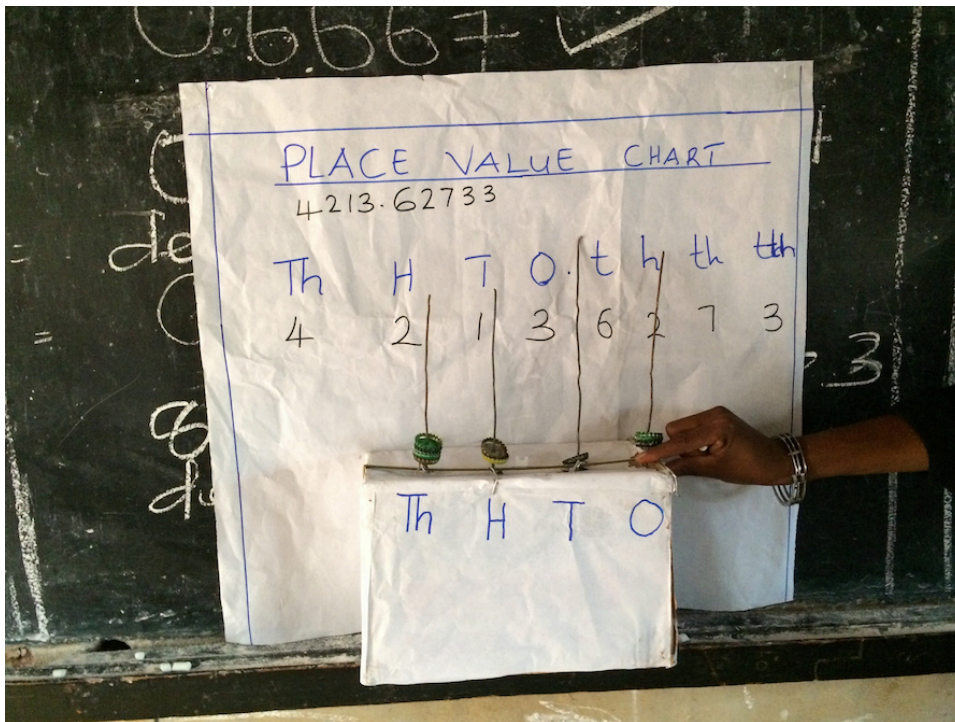 0.6667
PLACE VALUE CHART
4213.62733
Th H T O. t h th tth
4 2 1 3 6 2 7 3
.3
8
Th H T O